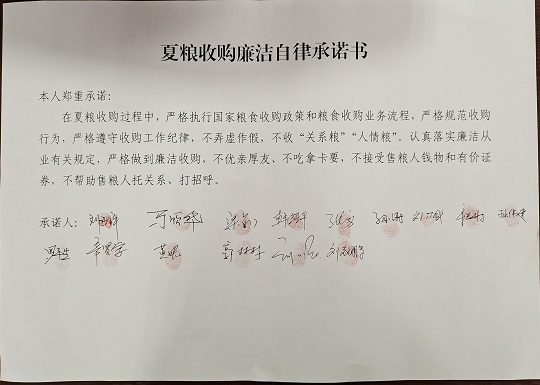 夏粮收购廉洁自律承诺书
本人郑重承诺：
在夏粮收购过程中，严格执行国家粮食收购政策和粮食收购业务流程，严格规范收购
行为，严格遵守收购工作纪律，不弄虚作假，不收“关系粮”“人情粮”。认真落实廉洁从
业有关规定，严格做到廉洁收购，不优亲厚友、不吃拿卡要，不接受售粮人钱物和有价证
券，不帮助售粮人托关系、打招呼。
承诺人：